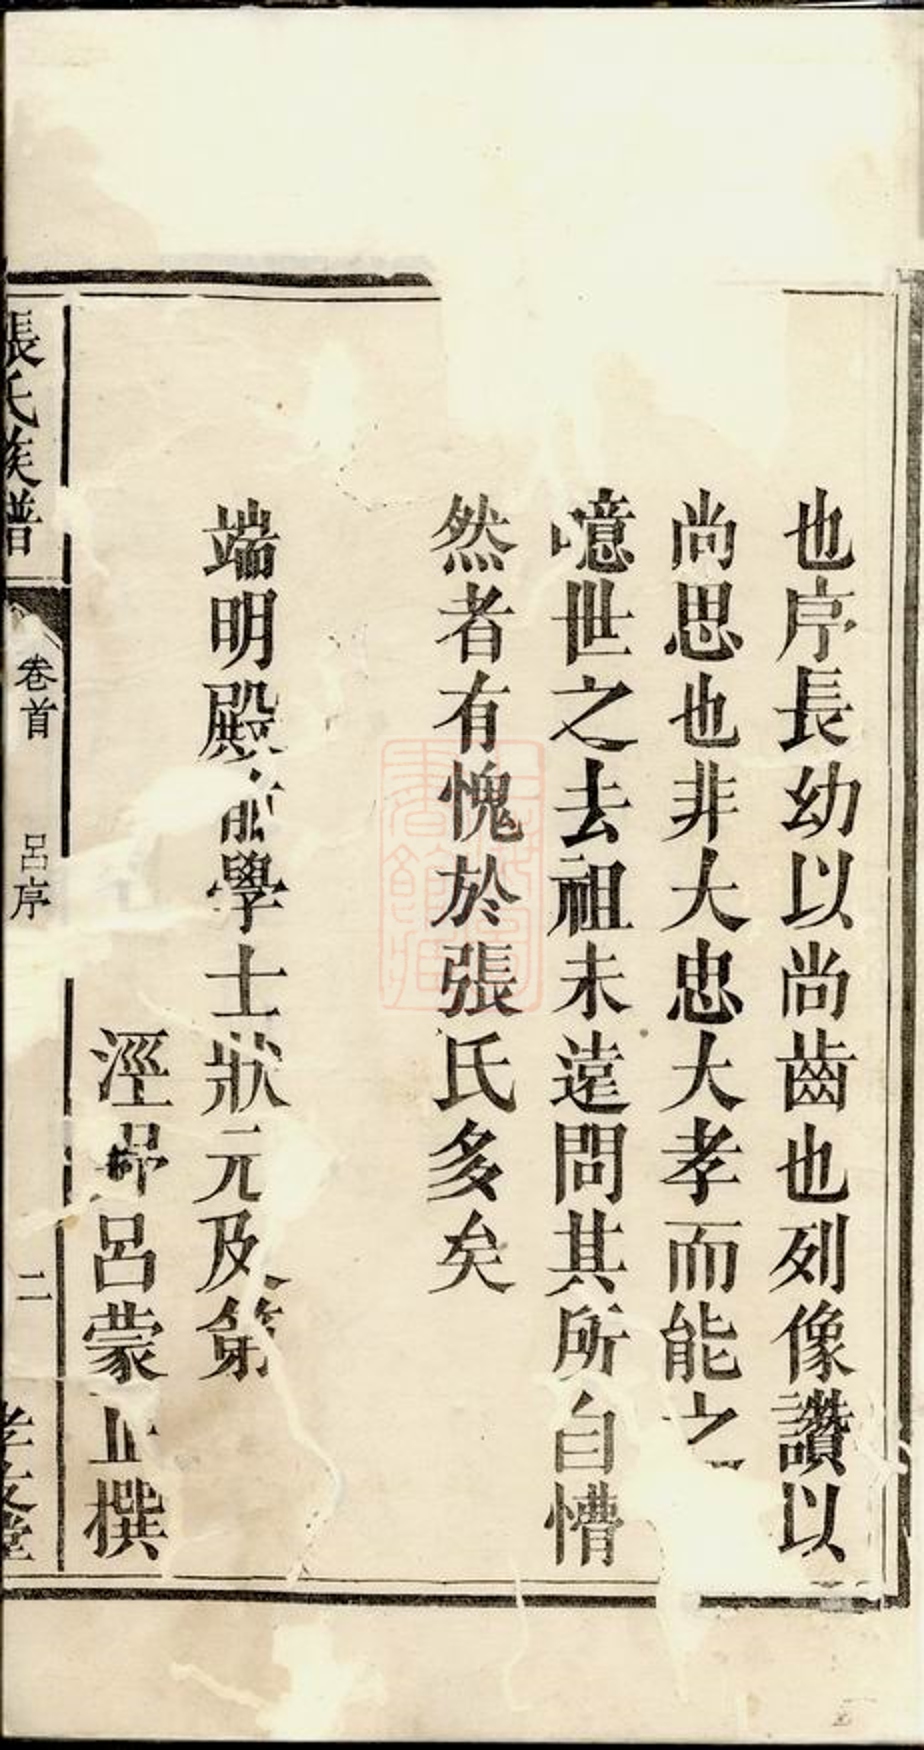 也序長幼以尚齒也列像讚以
尚思也非大忠大孝而能之
噫世之去祖未遠問其所自懵
然者有愧於張氏多矣
端明殿前學士狀元及第
涇 呂蒙正撰
張氏族譜
卷首
呂序
二
孝友堂